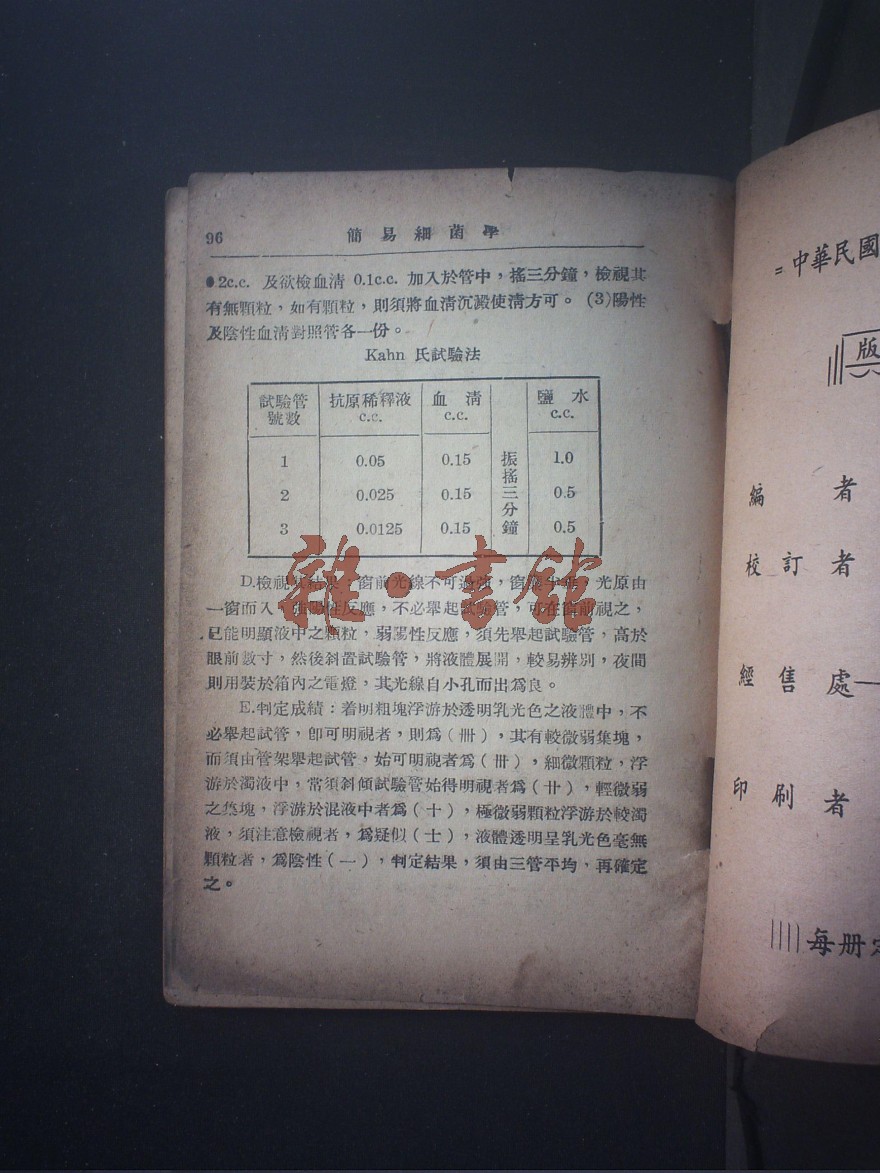 96 簡易細菌學
●2c.c. 及欲檢血清 0.1c.c. 加入於管中，搖三分鐘，檢視其
有無顆粒，如有顆粒，則須將血清沉澱使清方可。(3)陽性
及陰性血清對照管各一份。
Kahn 氏試驗法
試驗管號數 抗原稀釋液 c.c. 血清 c.c. 振搖三分鐘 鹽水 c.c.
1 0.05 0.15 1.0
2 0.025 0.15 0.5
3 0.0125 0.15 0.5
雜·書館
D.檢視其結果：窗前光線不可過強，窗簾半垂，光原由
一窗而入，強陽性反應，不必舉起試驗管，可在窗前視之，
已能明顯液中之顆粒，弱陽性反應，須先舉起試驗管，高於
眼前數寸，然後斜置試驗管，將液體展開，較易辨別，夜間
則用裝於箱內之電燈，其光線自小孔而出爲良。
E.判定成績：着明粗塊浮游於透明乳光色之液體中，不
必舉起試管，卽可明視者，則爲(卌)，其有較微弱集塊，
而須由管架舉起試管，始可明視者爲(卅)，細微顆粒，浮
游於濁液中，常須斜傾試驗管始得明視者爲(廾)，輕微弱
之集塊，浮游於混液中者爲(十)，極微弱顆粒浮游於較濁
液，須注意檢視者，爲疑似(士)，液體透明呈乳光色毫無
顆粒者，爲陰性(一)，判定結果，須由三管平均，再確定
之。
=中華民國
版
編 者
校訂者
經售處
印刷者
每册定